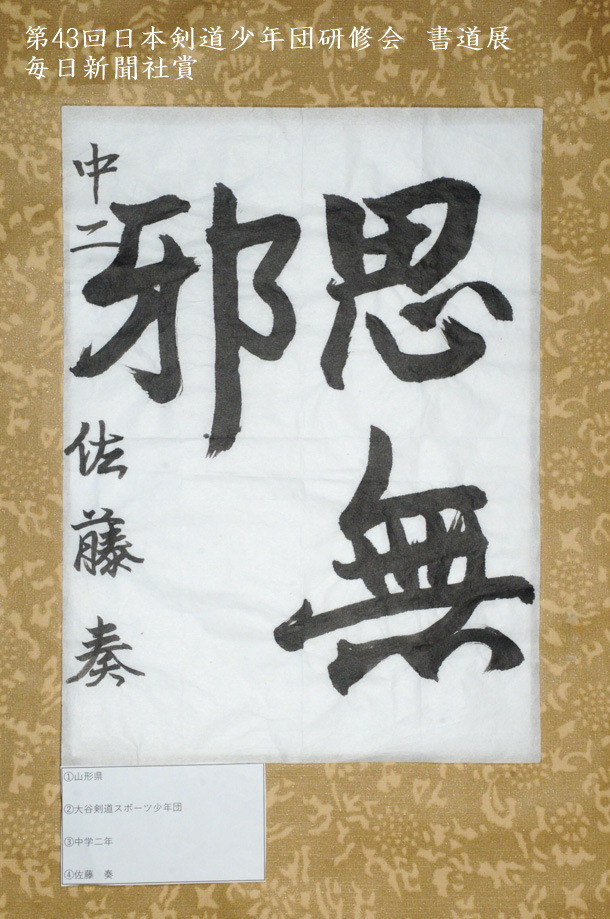 第43回日本剣道少年団研修会 書道展
毎日新聞社賞
思無
邪
中二 佐藤奏
①山形県
②大谷剣道スポーツ少年団
③中学二年
④佐藤 奏